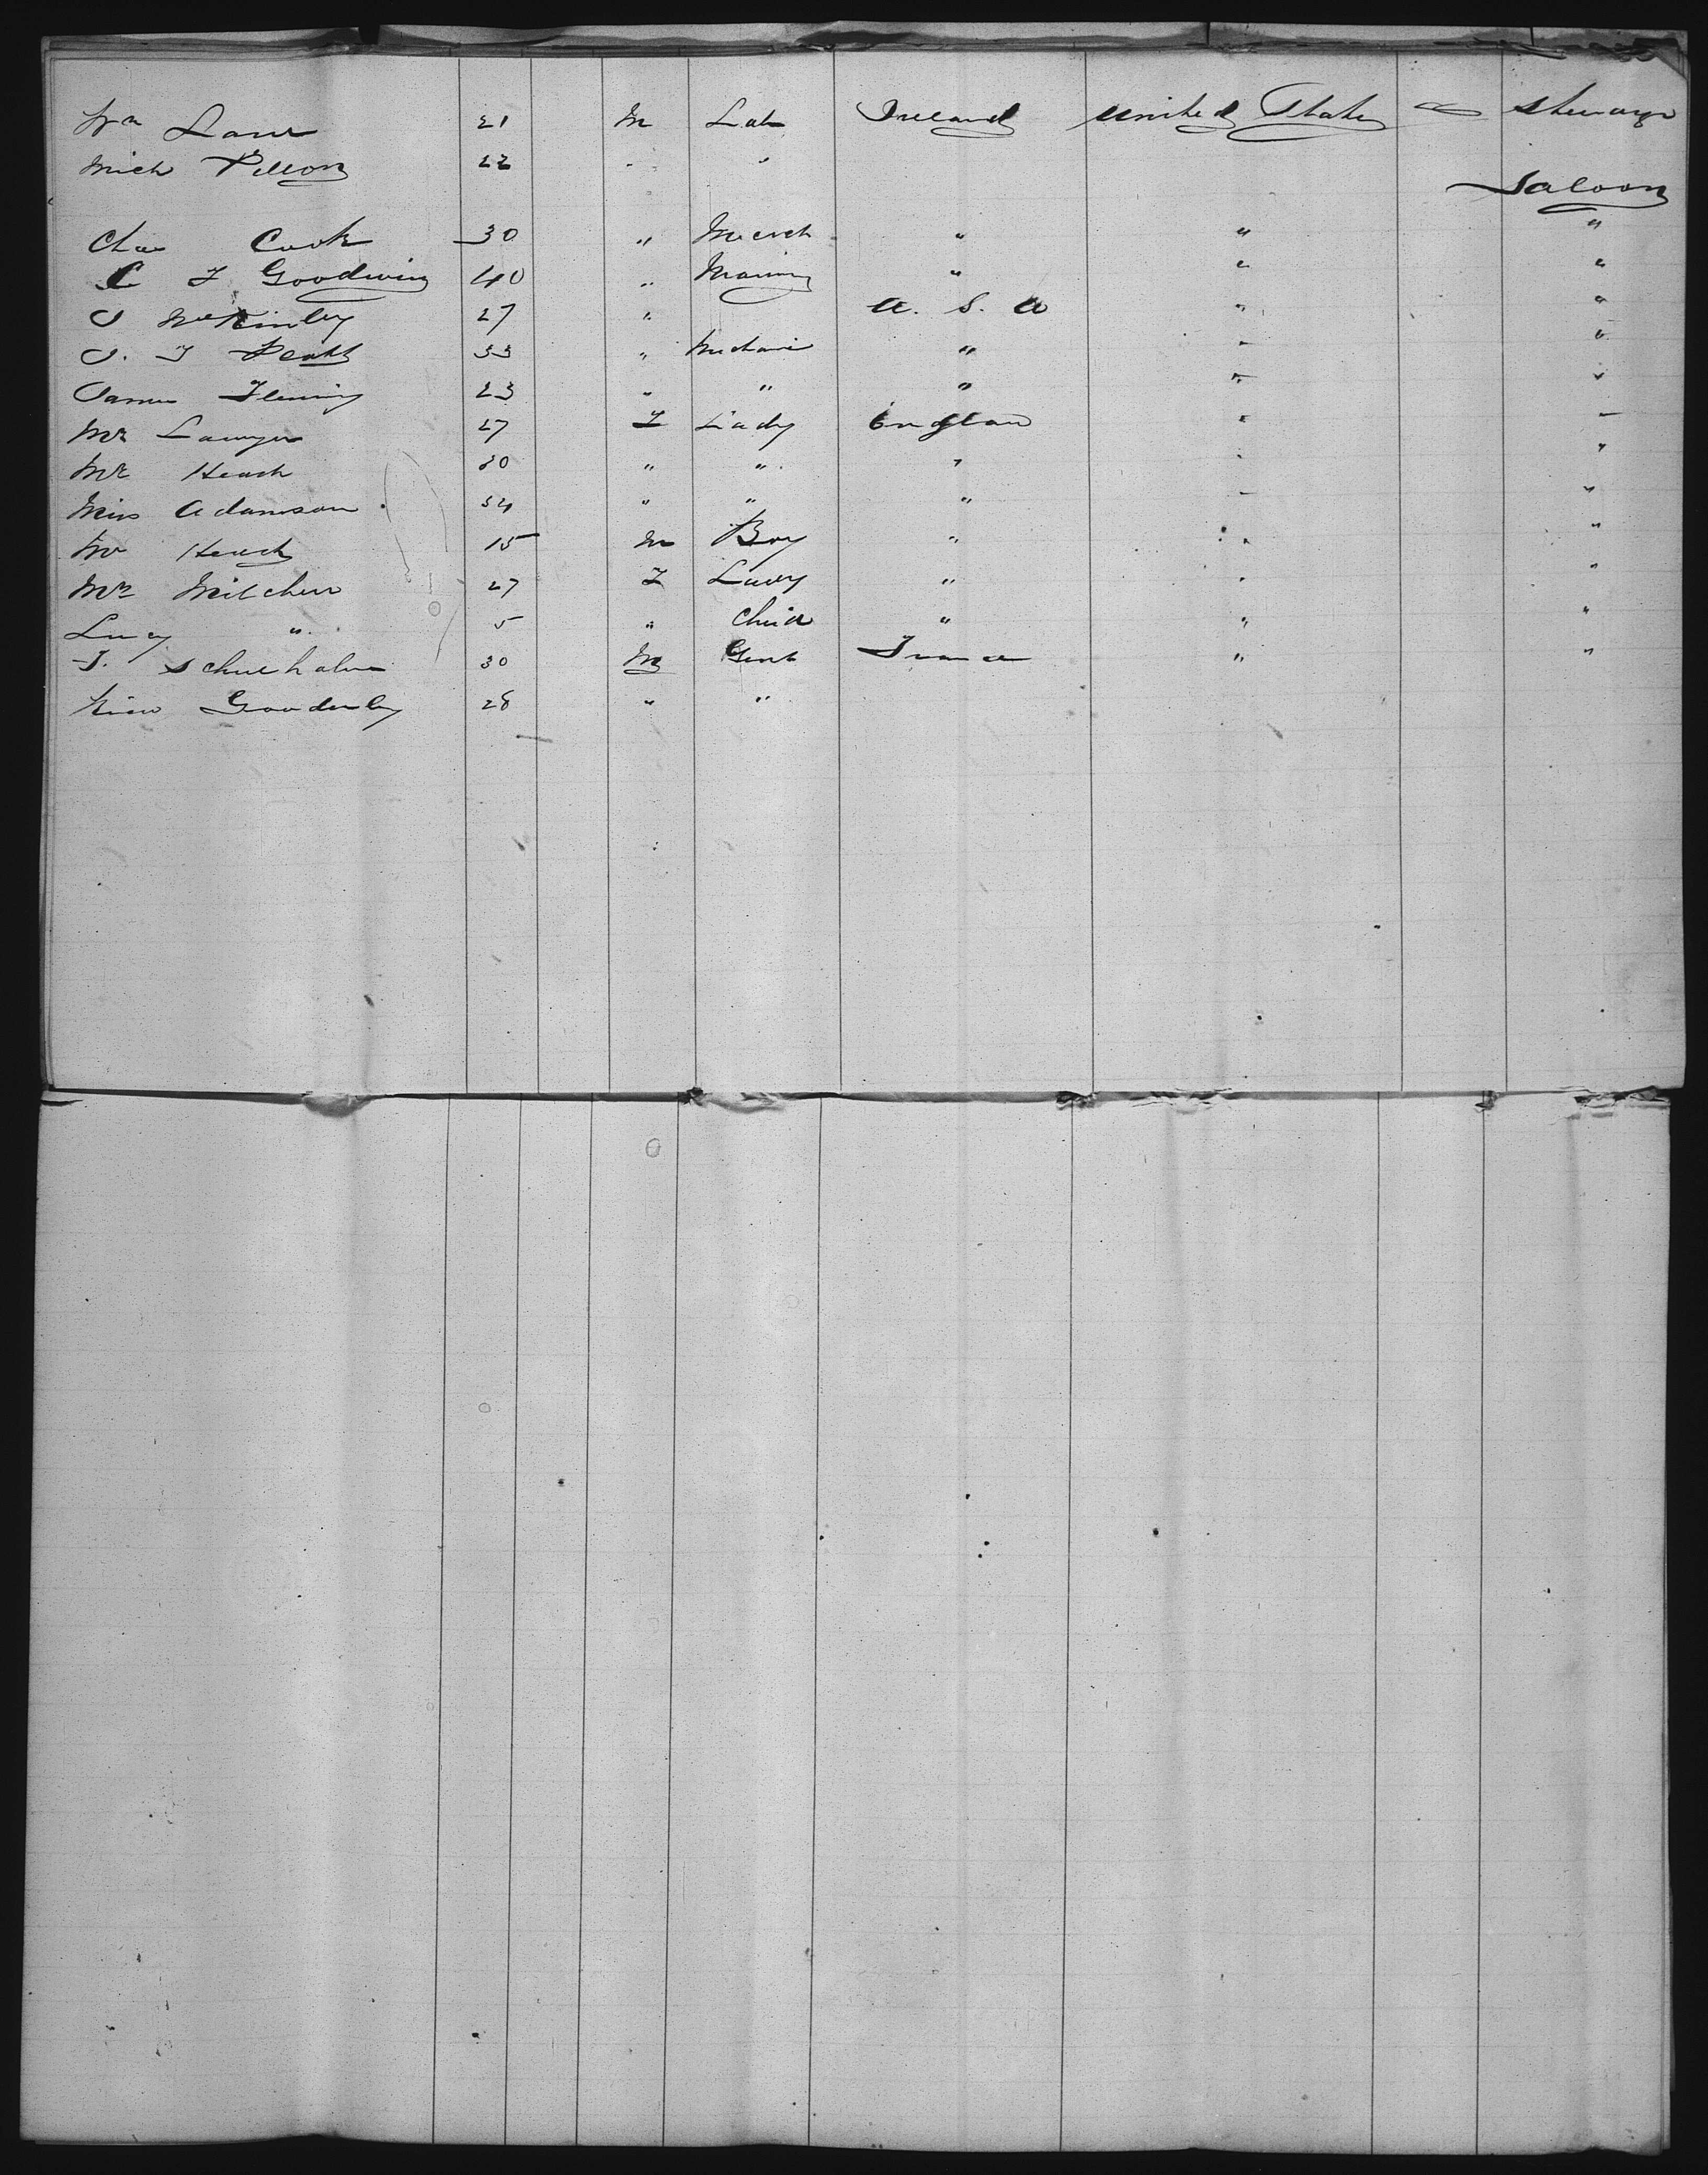 Wm Lane 21 M Lab Ireland United States Steerage
Mich 22 " "
Saloon
Chas Cook 30 " Merch " " "
C F Goodwin 40 " " " "
J McKinley 27 " U. S. A " "
J. F Scott 33 " Mechanic " " "
James Fleming 23 " " " " "
Mrs Lawyer 27 F Lady England " "
Mrs Heach 30 " " " " "
Miss Adamson 34 " " " " "
Mr Heach 15 M Boy " " "
Mrs Mitchell 27 F Lady " " "
Lucy " 5 " Child " " "
J. 30 M Gent France " "
Miss 28 " "